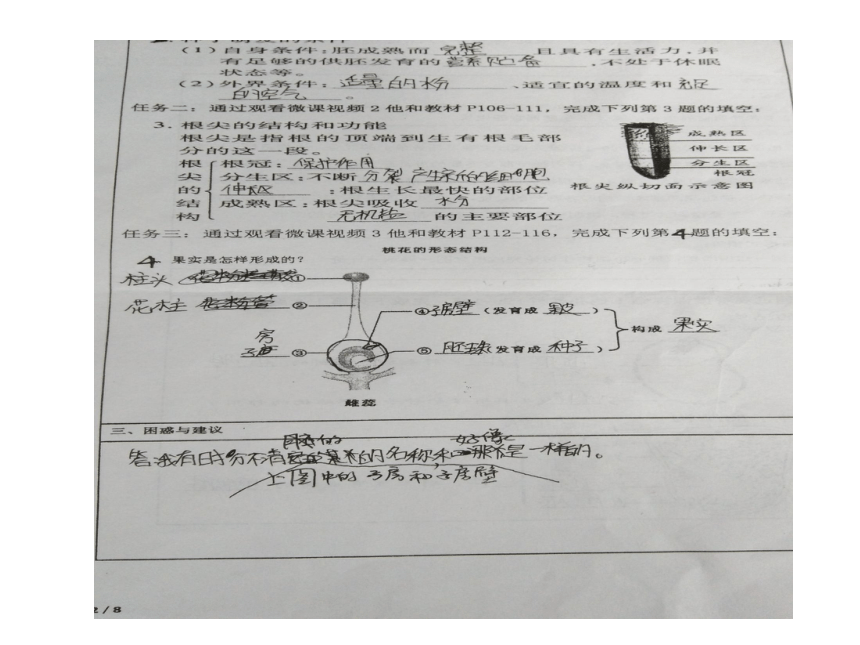 (1)自身条件:胚成熟而 完整 且具有生活力,并
有足够的供胚发育的营养贮备,不处于休眠
状态等。
(2)外界条件:适量的水分、适宜的温度和充足
的空气。
任务二:通过观看微课视频2他和教材P106-111,完成下列第3题的填空:
3.根尖的结构和功能
根尖是指根的顶端到生有根毛部
分的这一段。
根尖的结构
根冠:保护作用
分生区:不断分裂产生新的细胞
伸长区:根生长最快的部位
成熟区:根尖吸收 水分
无机盐 的主要部位
成熟区
伸长区
分生区
根冠
根尖纵切面示意图
任务三:通过观看微课视频3他和教材P112-116,完成下列第4题的填空:
桃花的形态结构
4 果实是怎样形成的?
柱头 ①
花柱 ②
子房 ③
④子房壁(发育成 果皮)
⑤ 胚珠(发育成 种子)
构成 果实
雌蕊
三、困惑与建议
答:我有时分不清 的名称和 好像 是一样的。
上图中的子房和子房壁
2/8